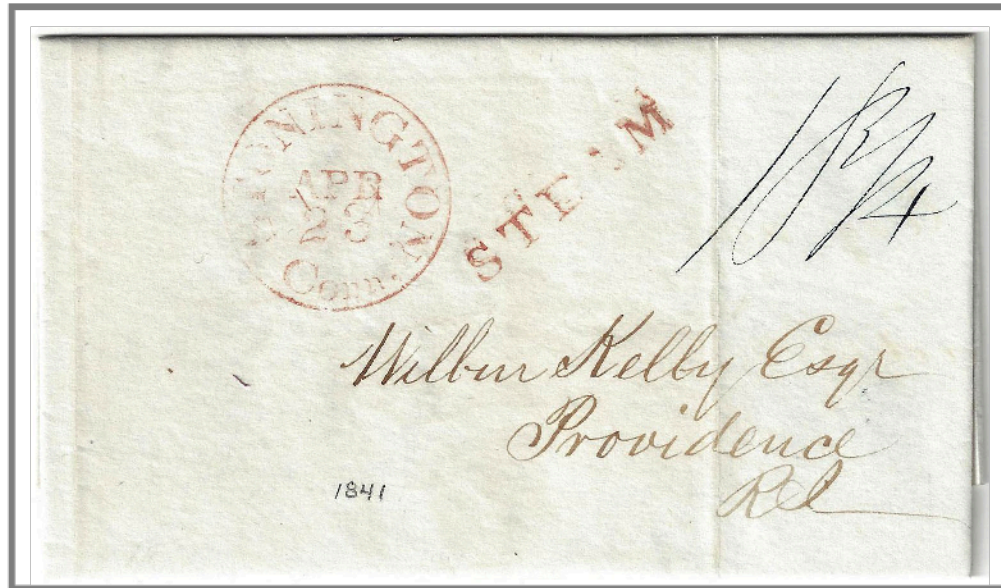 STONINGTON
APR
23
Conn.
STEAM
18 3/4
Wilbur Kelly Esqr
Providence
RI
1841